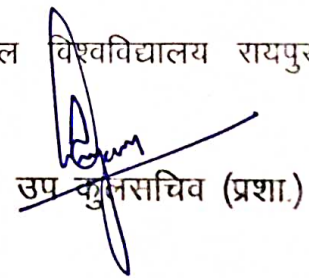 विश्वविद्यालय रायपुर
उप कुलसचिव (प्रशा.)